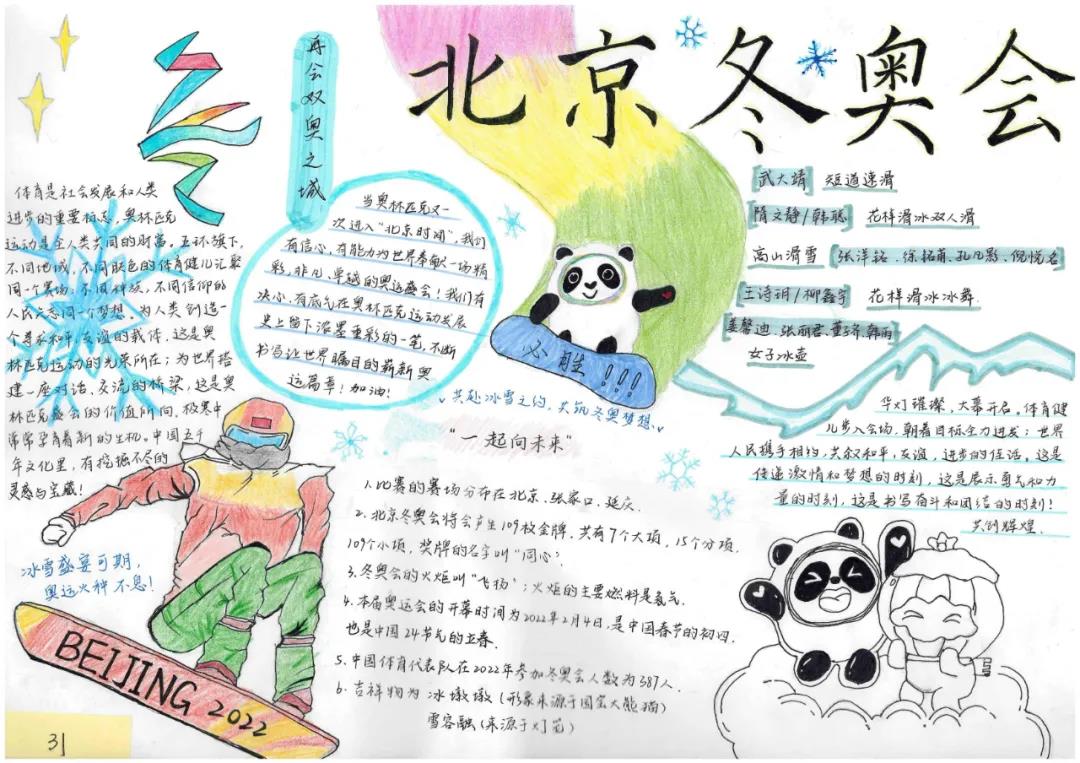 北京冬奥会
再会双奥之城
体育是社会发展和人类
进步的重要标志。奥林匹克
运动是全人类共同的财富。五环旗下,
不同地域、不同肤色的体育健儿汇聚
同一个赛场；不同种族、不同信仰的
人民共同一个梦想。为人类创造一
个寻求和平、友谊的载体,这是奥
林匹克运动的光荣所在；为世界搭
建一座对话、交流的桥梁,这是奥
林匹克盛会的价值所向。极寒中
常常孕育着新的生机。中国五千
年文化里,有挖掘不尽的
灵感与宝藏!
当奥林匹克又一
次进入"北京时间",我们
有信心、有能力为世界奉献一场精
彩、非凡、卓越的奥运盛会!我们有
决心、有底气在奥林匹克运动发展
史上留下浓墨重彩的一笔,不断
书写让世界瞩目的崭新奥
运篇章!加油!
必胜!!!
共赴冰雪之约,共筑冬奥梦想
"一起向未来"
武大靖 短道速滑
隋文静/韩聪 花样滑冰双人滑
高山滑雪 张洋铭、徐铭甫、孔凡影、倪悦名
王诗玥/柳鑫宇 花样滑冰冰舞
姜馨迪、张丽君、董子齐、韩雨
女子冰壶
华灯璀璨,大幕开启。体育健
儿步入会场,朝着目标全力进发；世界
人民携手相约,共叙和平、友谊、进步的佳话。这是
传递激情和梦想的时刻,这是展示勇气和力
量的时刻,这是书写奋斗和团结的时刻!
共创辉煌.
1.比赛的赛场分布在北京、张家口、延庆.
2.北京冬奥会将会产生109枚金牌,共有7个大项,15个分项,
109个小项,奖牌的名字叫"同心".
3.冬奥会的火炬叫"飞扬"；火炬的主要燃料是氢气.
4.本届奥运会的开幕时间为2022年2月4日,是中国春节的初四,
也是中国24节气的立春.
5.中国体育代表队在2022年参加冬奥会人数为387人.
6.吉祥物为冰墩墩(形象来源于国宝大熊猫)
雪容融(来源于灯笼)
冰雪盛宴可期,
奥运火种不息!
BEIJING 2022
31